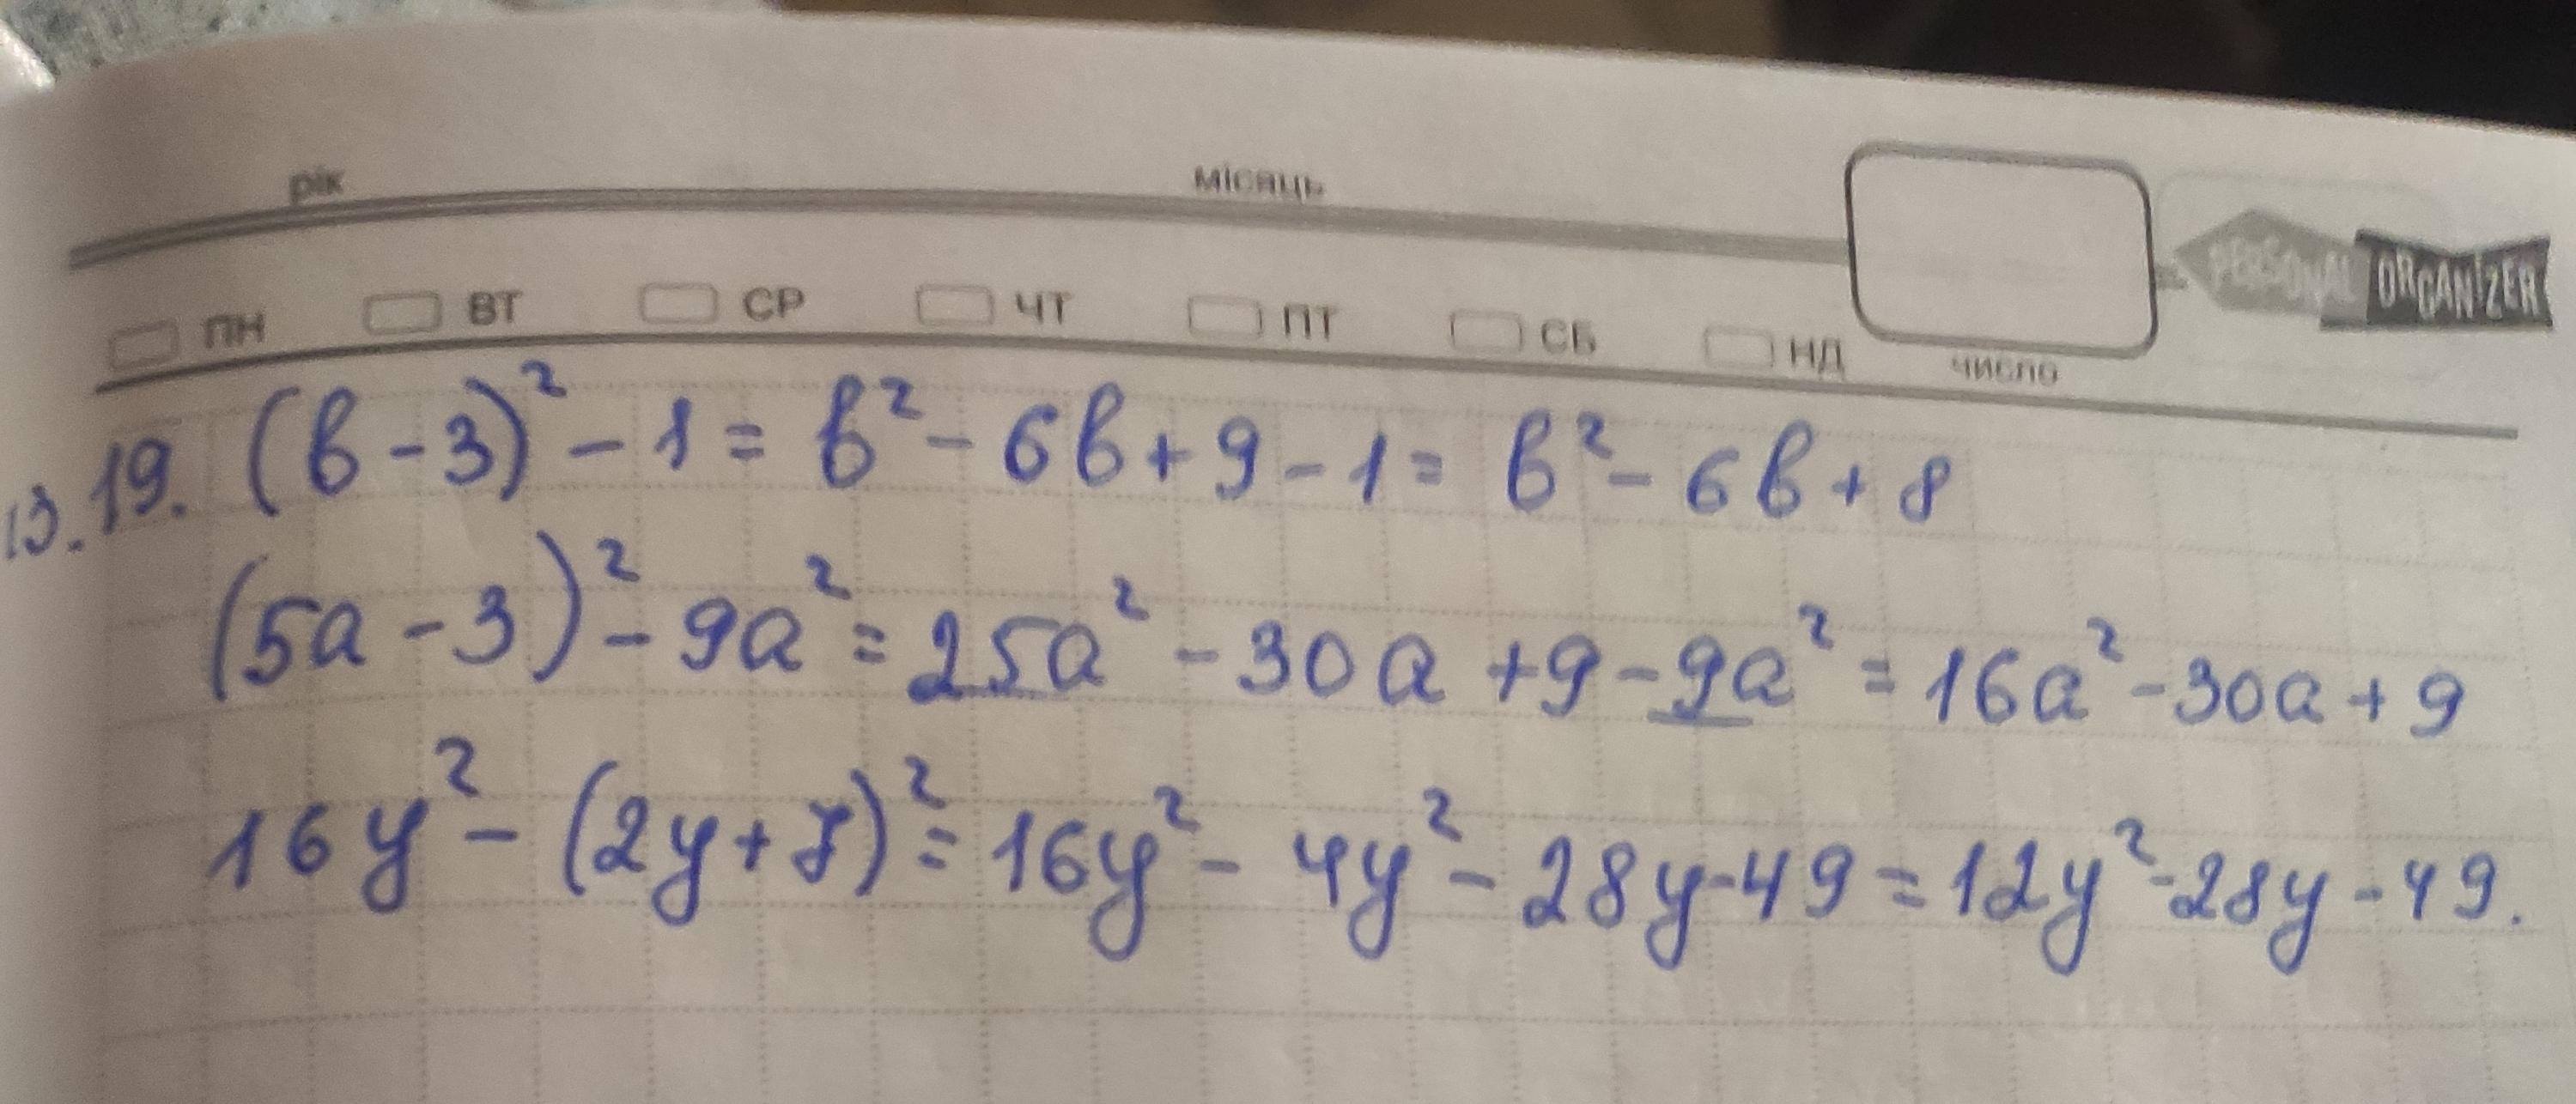 рік місяць
ПН ВТ СР ЧТ ПТ СБ НД число PERSONAL ORGANIZER
13.19. (в-3)² - 1 = в² - 6в + 9 - 1 = в² - 6в + 8
(5a - 3)² - 9a² = 25a² - 30a + 9 - 9a² = 16a² - 30a + 9
16y² - (2y + 7)² = 16y² - 4y² - 28y - 49 = 12y² - 28y - 49.